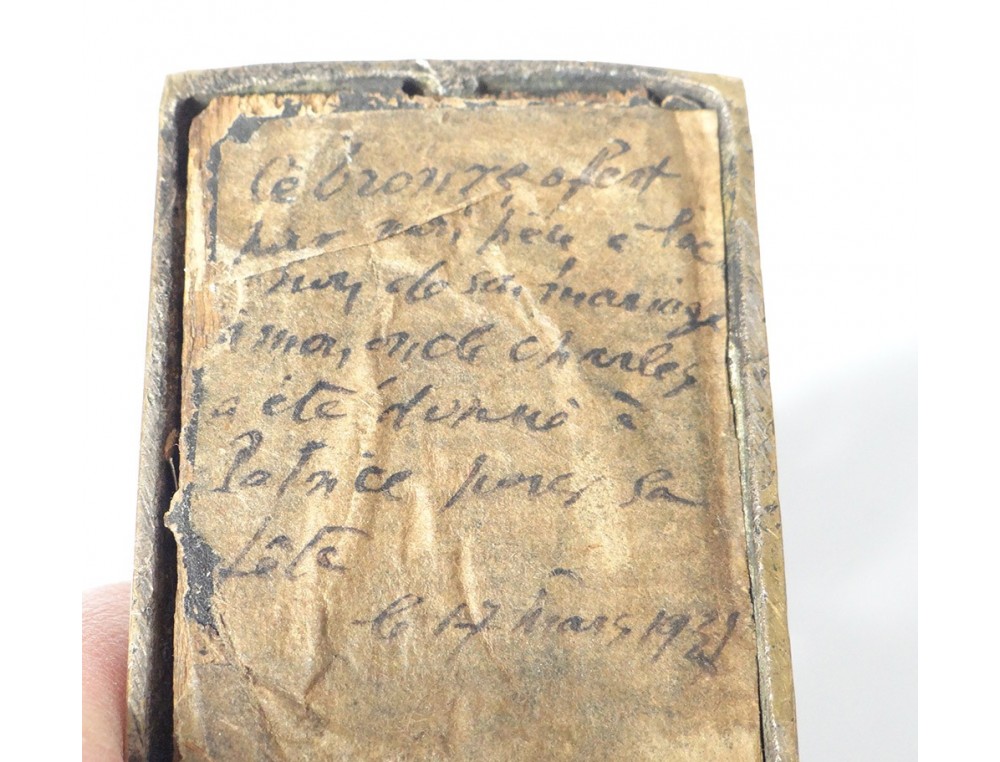 Ce bronze offert
par mon père à l'oc
de son mariage
à mon oncle Charles
a été donné à
Patrice pour sa
fête
le 17 mars